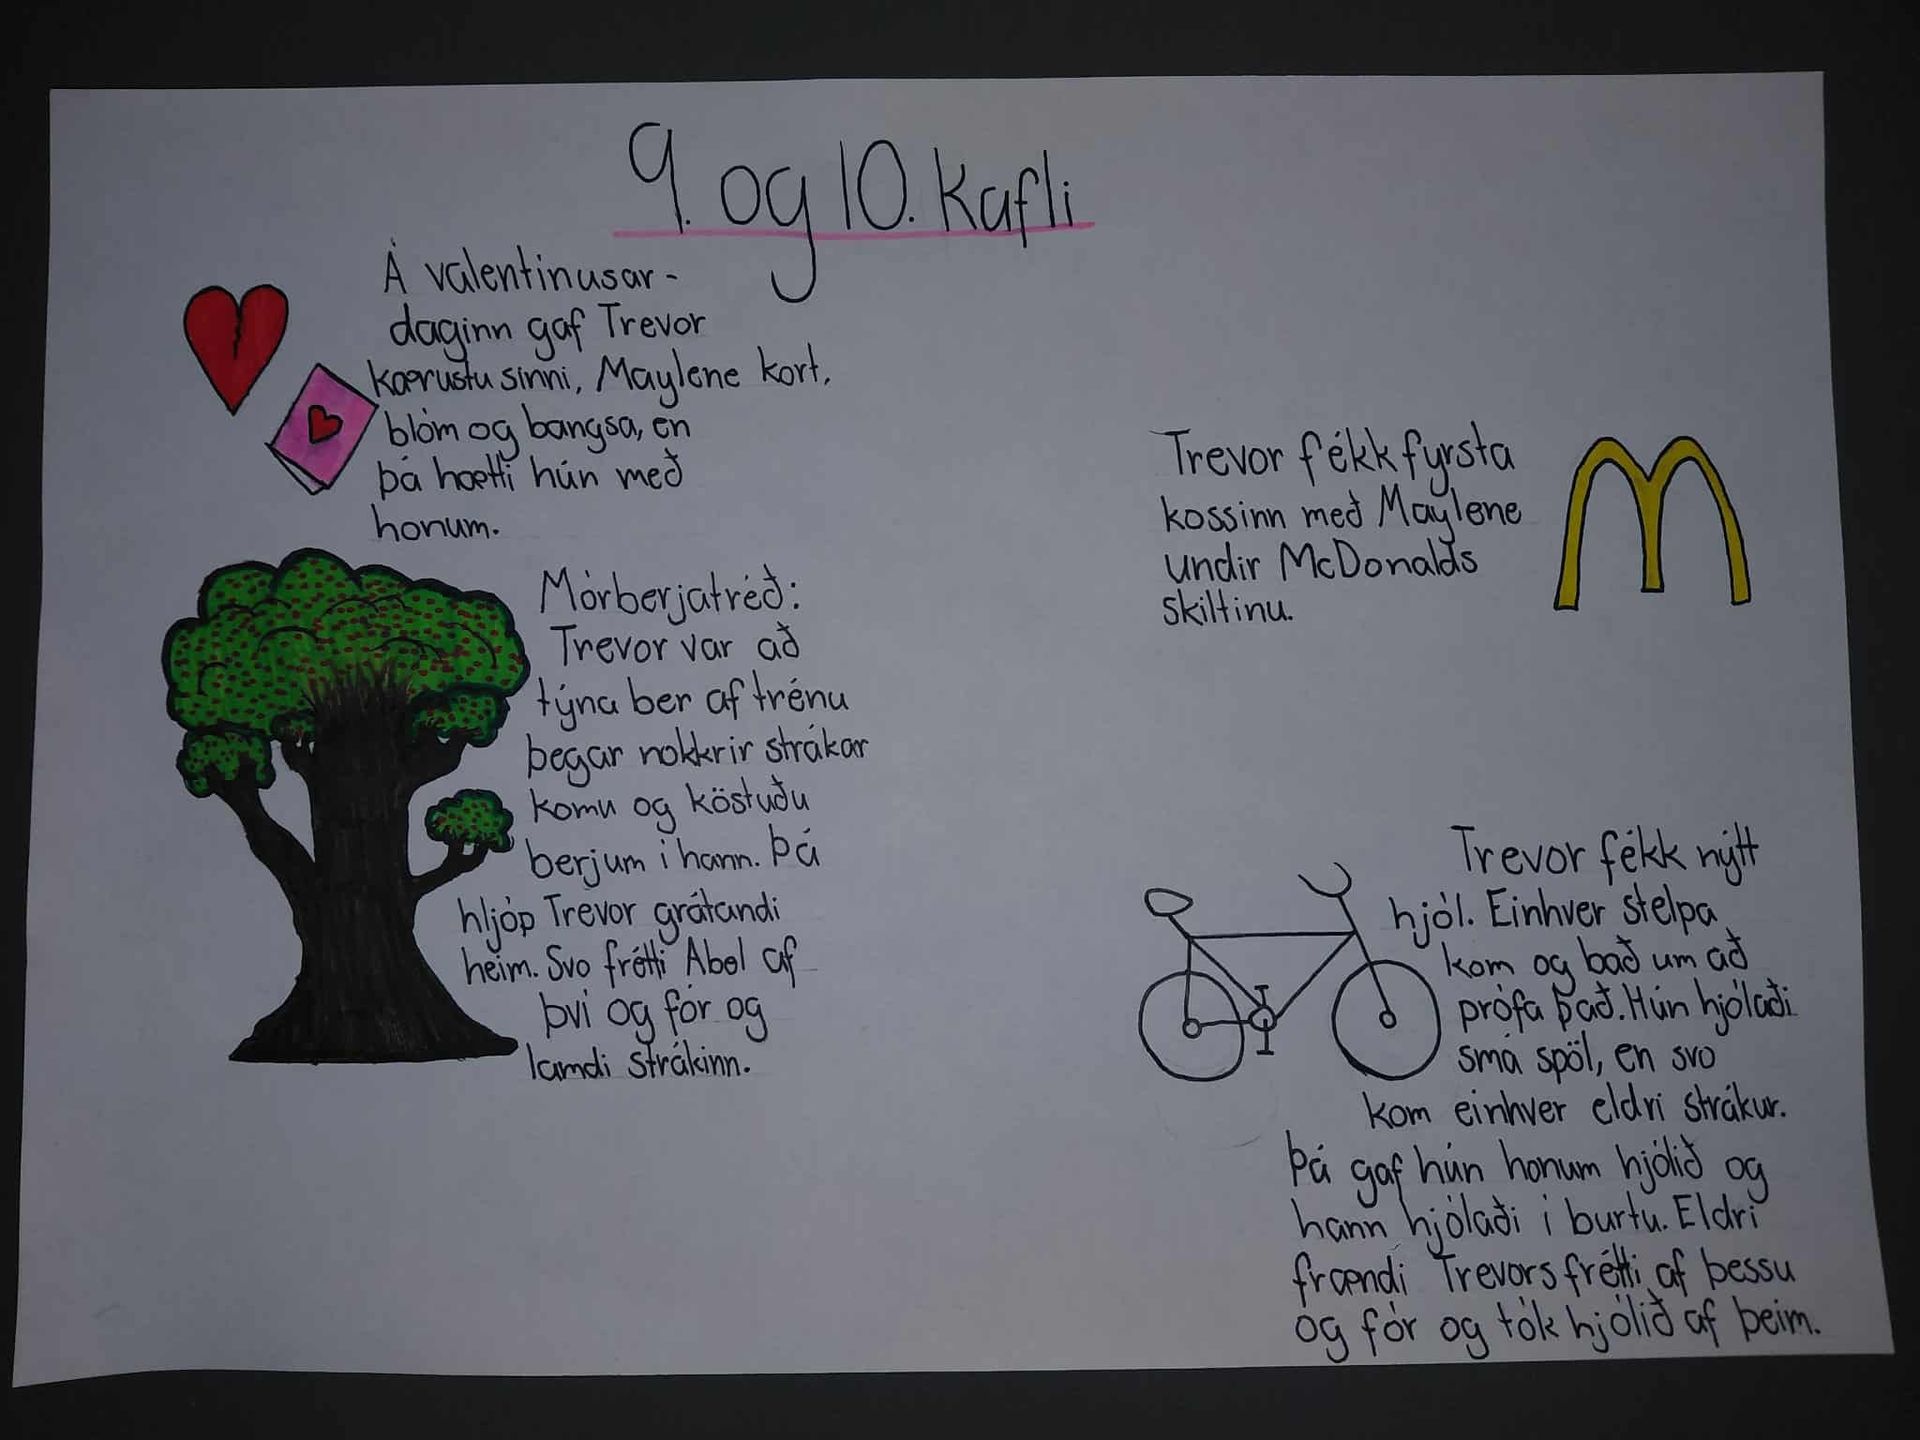 9. og 10. Kafli
Á valentínusar-
daginn gaf Trevor
kærustu sinni, Maylene kort,
blóm og bangsa, en
þá hætti hún með
honum.
Mórberjatréð:
Trevor var að
týna ber af trénu
þegar nokkrir strákar
komu og köstuðu
berjum í hann. Þá
hljóp Trevor grátandi
heim. Svo frétti Abel af
því og fór og
lamdi strákinn.
Trevor fékk fyrsta
kossinn með Maylene
undir McDonalds
skiltinu.
Trevor fékk nýtt
hjól. Einhver stelpa
kom og bað um að
prófa það. Hún hjólaði
smá spöl, en svo
kom einhver eldri strákur.
Þá gaf hún honum hjólið og
hann hjólaði í burtu. Eldri
frændi Trevors frétti af þessu
og fór og tók hjólið af þeim.